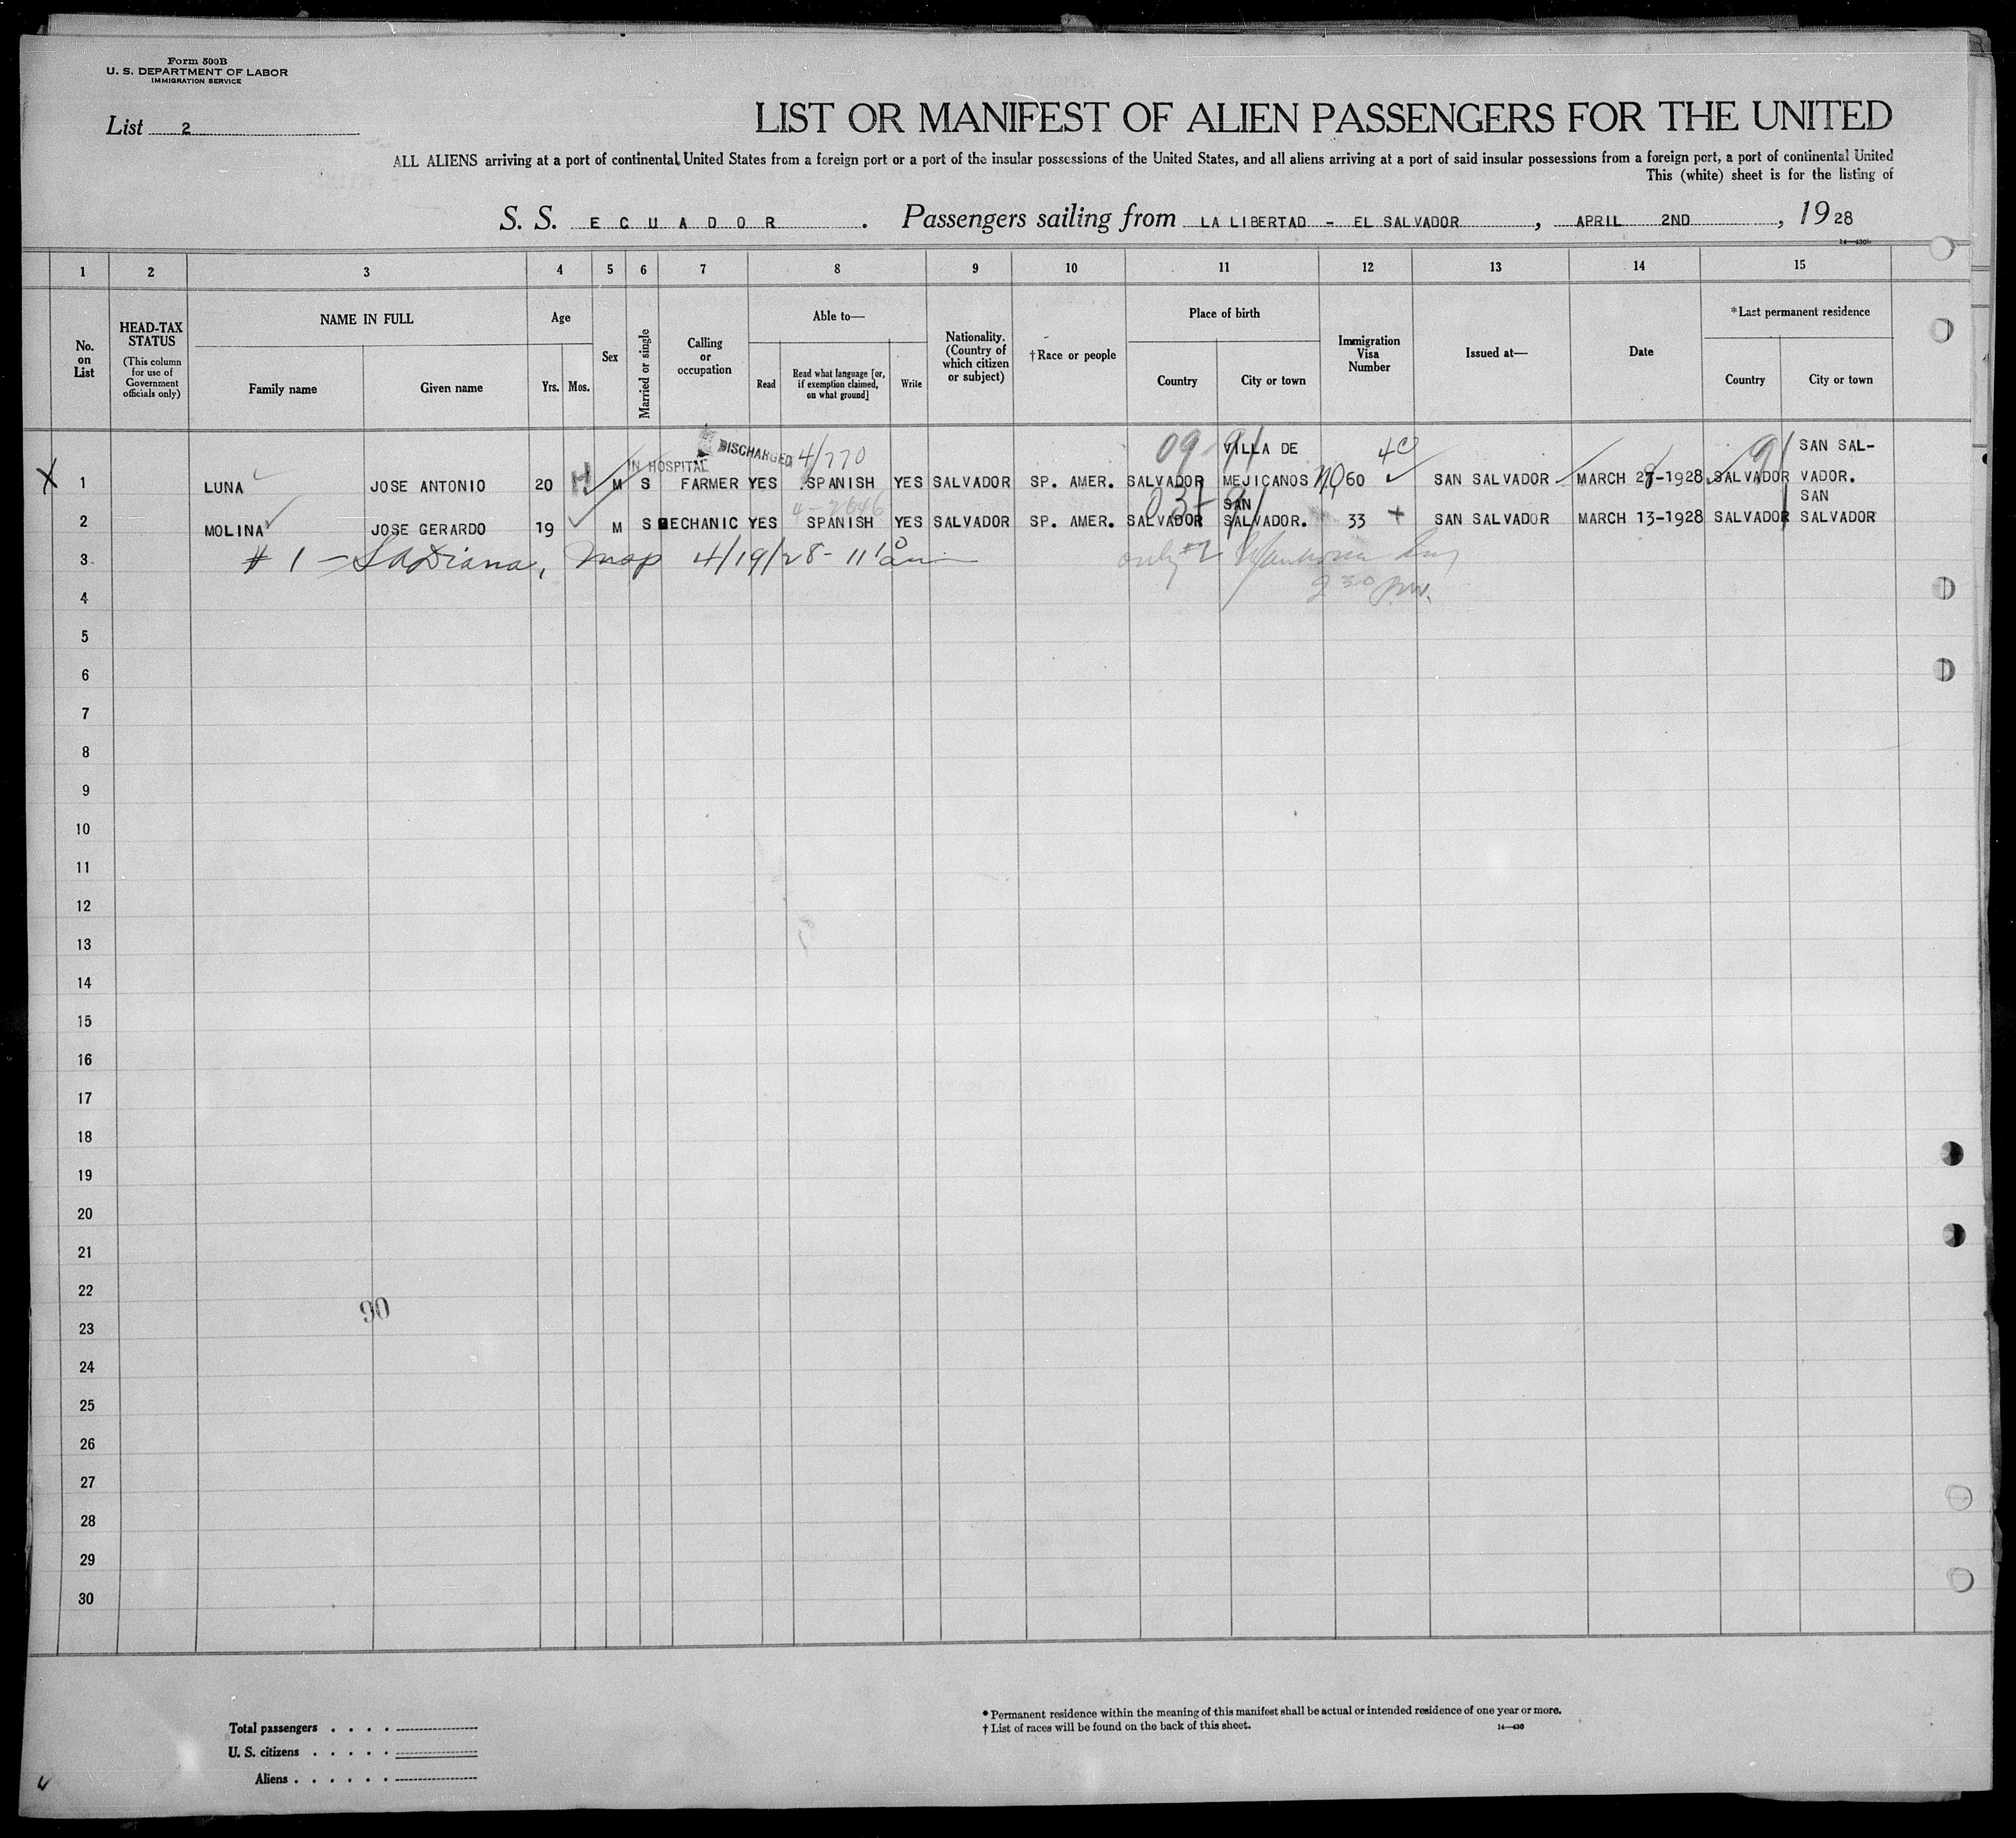 Form 500B
U. S. DEPARTMENT OF LABOR
IMMIGRATION SERVICE
List 2
LIST OR MANIFEST OF ALIEN PASSENGERS FOR THE UNITED
ALL ALIENS arriving at a port of continental United States from a foreign port or a port of the insular possessions of the United States, and all aliens arriving at a port of said insular possessions from a foreign port, a port of continental United
This (white) sheet is for the listing of
S. S. ECUADOR. Passengers sailing from LA LIBERTAD - EL SALVADOR, APRIL 2ND, 1928
1 2 3 4 5 6 7 8 9 10 11 12 13 14 15
No. on List
HEAD-TAX STATUS
(This column for use of Government officials only)
NAME IN FULL
Family name
Given name
Age
Yrs.
Mos.
Sex
Married or single
Calling or occupation
Able to—
Read
Read what language [or, if exemption claimed, on what ground]
Write
Nationality. (Country of which citizen or subject)
†Race or people
Place of birth
Country
City or town
Immigration Visa Number
Issued at—
Date
*Last permanent residence
Country
City or town
IN HOSPITAL DISCHARGED 4/770 09 91 4C 91
X 1 LUNA JOSE ANTONIO 20 H M S FARMER YES SPANISH YES SALVADOR SP. AMER. SALVADOR VILLA DE MEJICANOS NO 60 SAN SALVADOR MARCH 28-1928 SALVADOR SAN SAL-VADOR.
2 MOLINA JOSE GERARDO 19 M S MECHANIC YES SPANISH YES SALVADOR SP. AMER. SALVADOR SAN SALVADOR. 33 SAN SALVADOR MARCH 13-1928 SALVADOR SAN SALVADOR
3 # 1 - 4/19/28 - 11 am only #2
2 30 p.m.
4
5
6
7
8
9
10
11
12
13
14
15
16
17
18
19
20
21
22
90
23
24
25
26
27
28
29
30
Total passengers
U. S. citizens
Aliens
* Permanent residence within the meaning of this manifest shall be actual or intended residence of one year or more.
† List of races will be found on the back of this sheet.
14—430